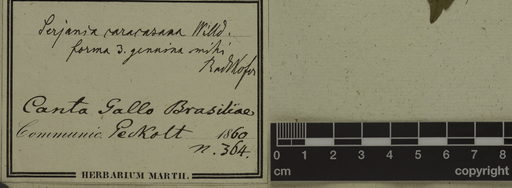 Serjania caracasana Willd.
forma 3. genuina mihi
Radlkofer
Canta Gallo Brasiliae
Communic. Peckolt 1860
n. 364.
HERBARIUM MARTII.
0 1 2 3 4 5 6 7 8
cm copyright